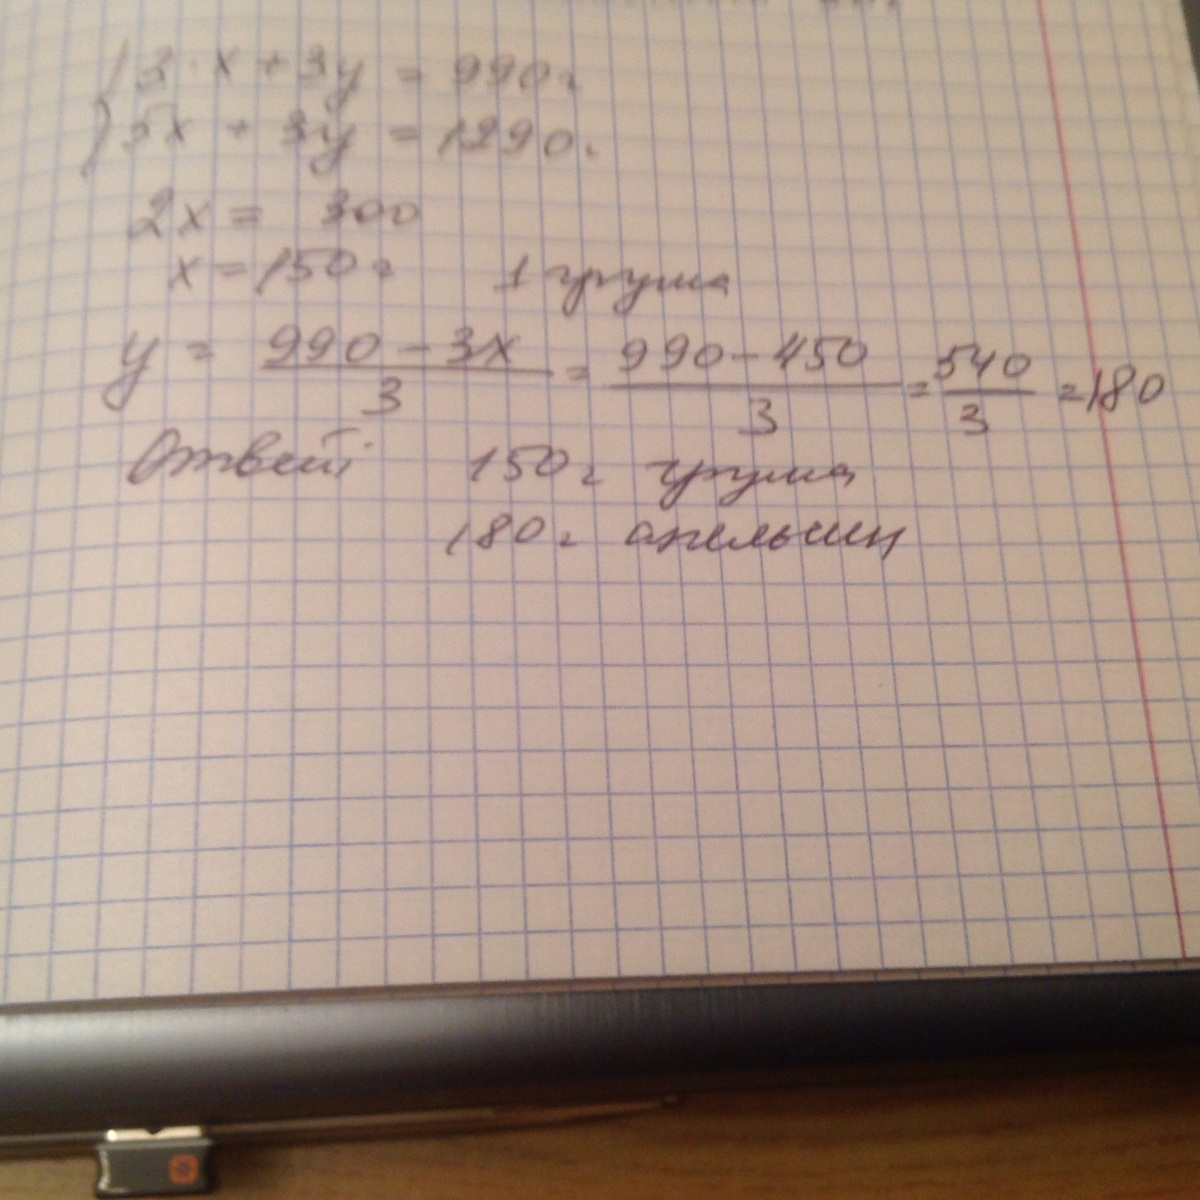 3·x + 3y = 990г
5x + 3y = 1290г
2x = 300
x = 150г 1 груша
y = 990 - 3x / 3 = 990 - 450 / 3 = 540 / 3 = 180
Ответ: 150г груша
180г апельсин